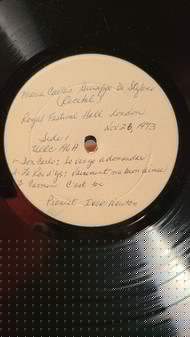 Maria Callas Giuseppe Di Stefano
(Recital)
Royal Festival Hall London
Nov 26, 1973
Side 1
URC 196A
1- Don Carlo: Io vengo a domandar
2- Le Roi d'Ys: Vainement ma bien aimée
3 Carmen: C'est toi
Pianist Ivor Newton